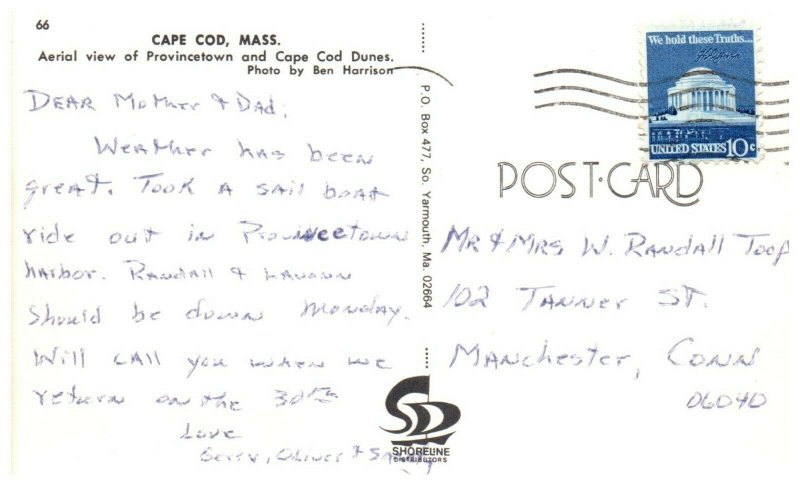 66
CAPE COD, MASS.
Aerial view of Provincetown and Cape Cod Dunes.
Photo by Ben Harrison
DEAR Mother & Dad,
Weather has been
great. Took a sail boat
ride out in Provincetown
harbor. Randall &
should be down Monday.
Will call you when we
return on the 30th
Love
& 
P.O. Box 477, So. Yarmouth, Ma. 02664
SHORELINE
DISTRIBUTORS
We hold these Truths...
UNITED STATES 10c
POST·CARD
Mr & Mrs W. Randall Toop
102 Tanner St.
Manchester, Conn
06040